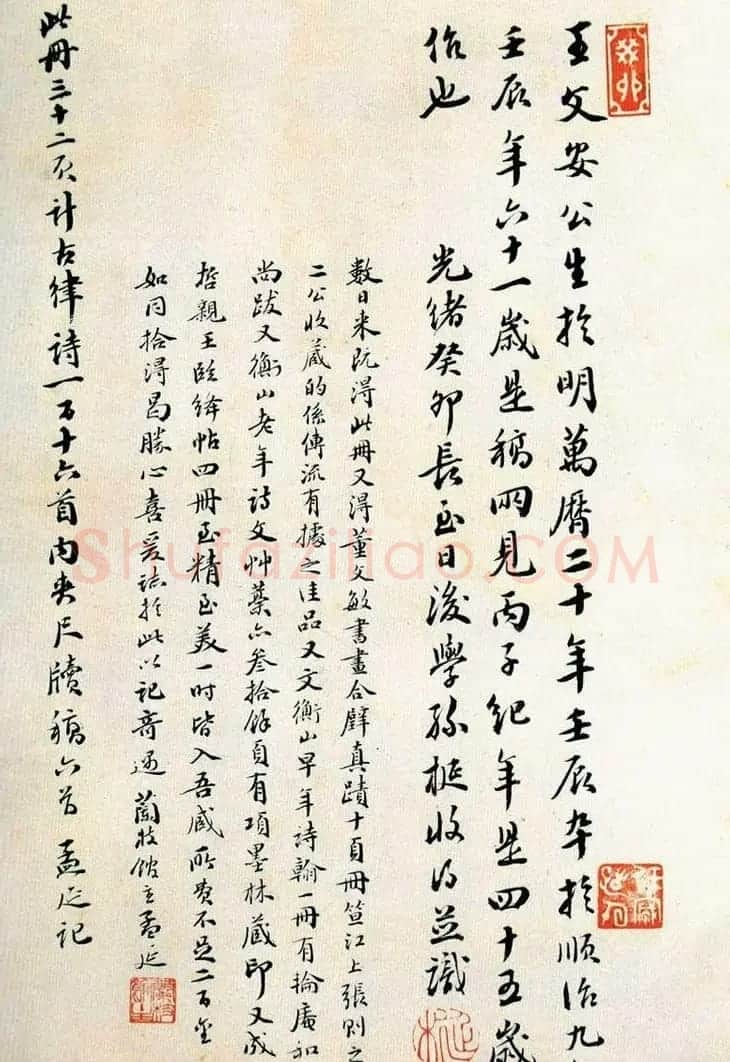 王文安公生於明萬曆二十年壬辰卒於順治九年
壬辰年六十一歲是稿兩見丙子紀年是四十五歲
作也
光緒癸卯長至日後學孫梃收得並識
數日來既得此冊又得董文敏書畫合璧真蹟十頁冊笪江上張則之
二公收藏的係傳流有據之佳品又文衡山早年詩翰一冊有掄庵和
尚跋又衡山老年詩文艸藁六叁拾餘頁有項墨林藏印又成
哲親王臨絳帖四冊至精至美一时皆入吾藏所費不足二百金
如同拾得曷勝心喜爰誌於此以記奇遇 蘭枝館主孟延
此冊三十二頁計古律詩一百十六首內夾尺牘稿六首 孟延記
癸卯
Shufaziliao.COM